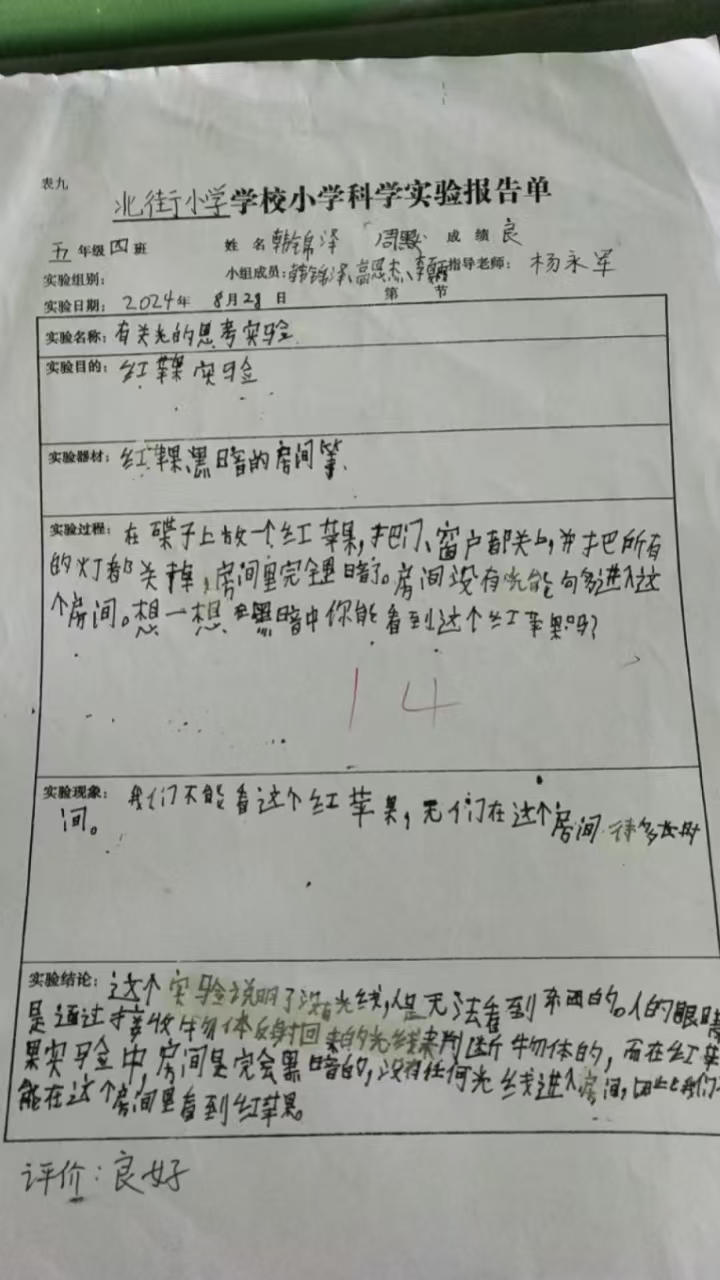 表九
北街小学学校小学科学实验报告单
五年级四班 姓名韩锦泽 成绩良
实验组别: 小组成员:韩锦泽、高恩杰、 指导老师:杨永军
实验日期:2024年8月28日 第 节
实验名称:有关光的思考实验
实验目的:红苹果实验
实验器材:红苹果、黑暗的房间等、
实验过程:在碟子上放一个红苹果,把门、窗户都关上,并把所有
的灯都关掉,房间里完全黑暗了。房间没有光能够多进入这
个房间。想一想 在黑暗中你能看到这个红苹果吗?
14
实验现象:我们不能看这个红苹果,无们在这个房间待多长时
间。
实验结论:这个实验说明了没有光线,人是无法看到东西的。人的眼睛
是通过接收物体反射回来的光线来判断物体的,而在红苹
果实验中,房间是完会黑暗的,没有任何光线进入房间,因此我们不
能在这个房间里看到红苹果。
评价:良好